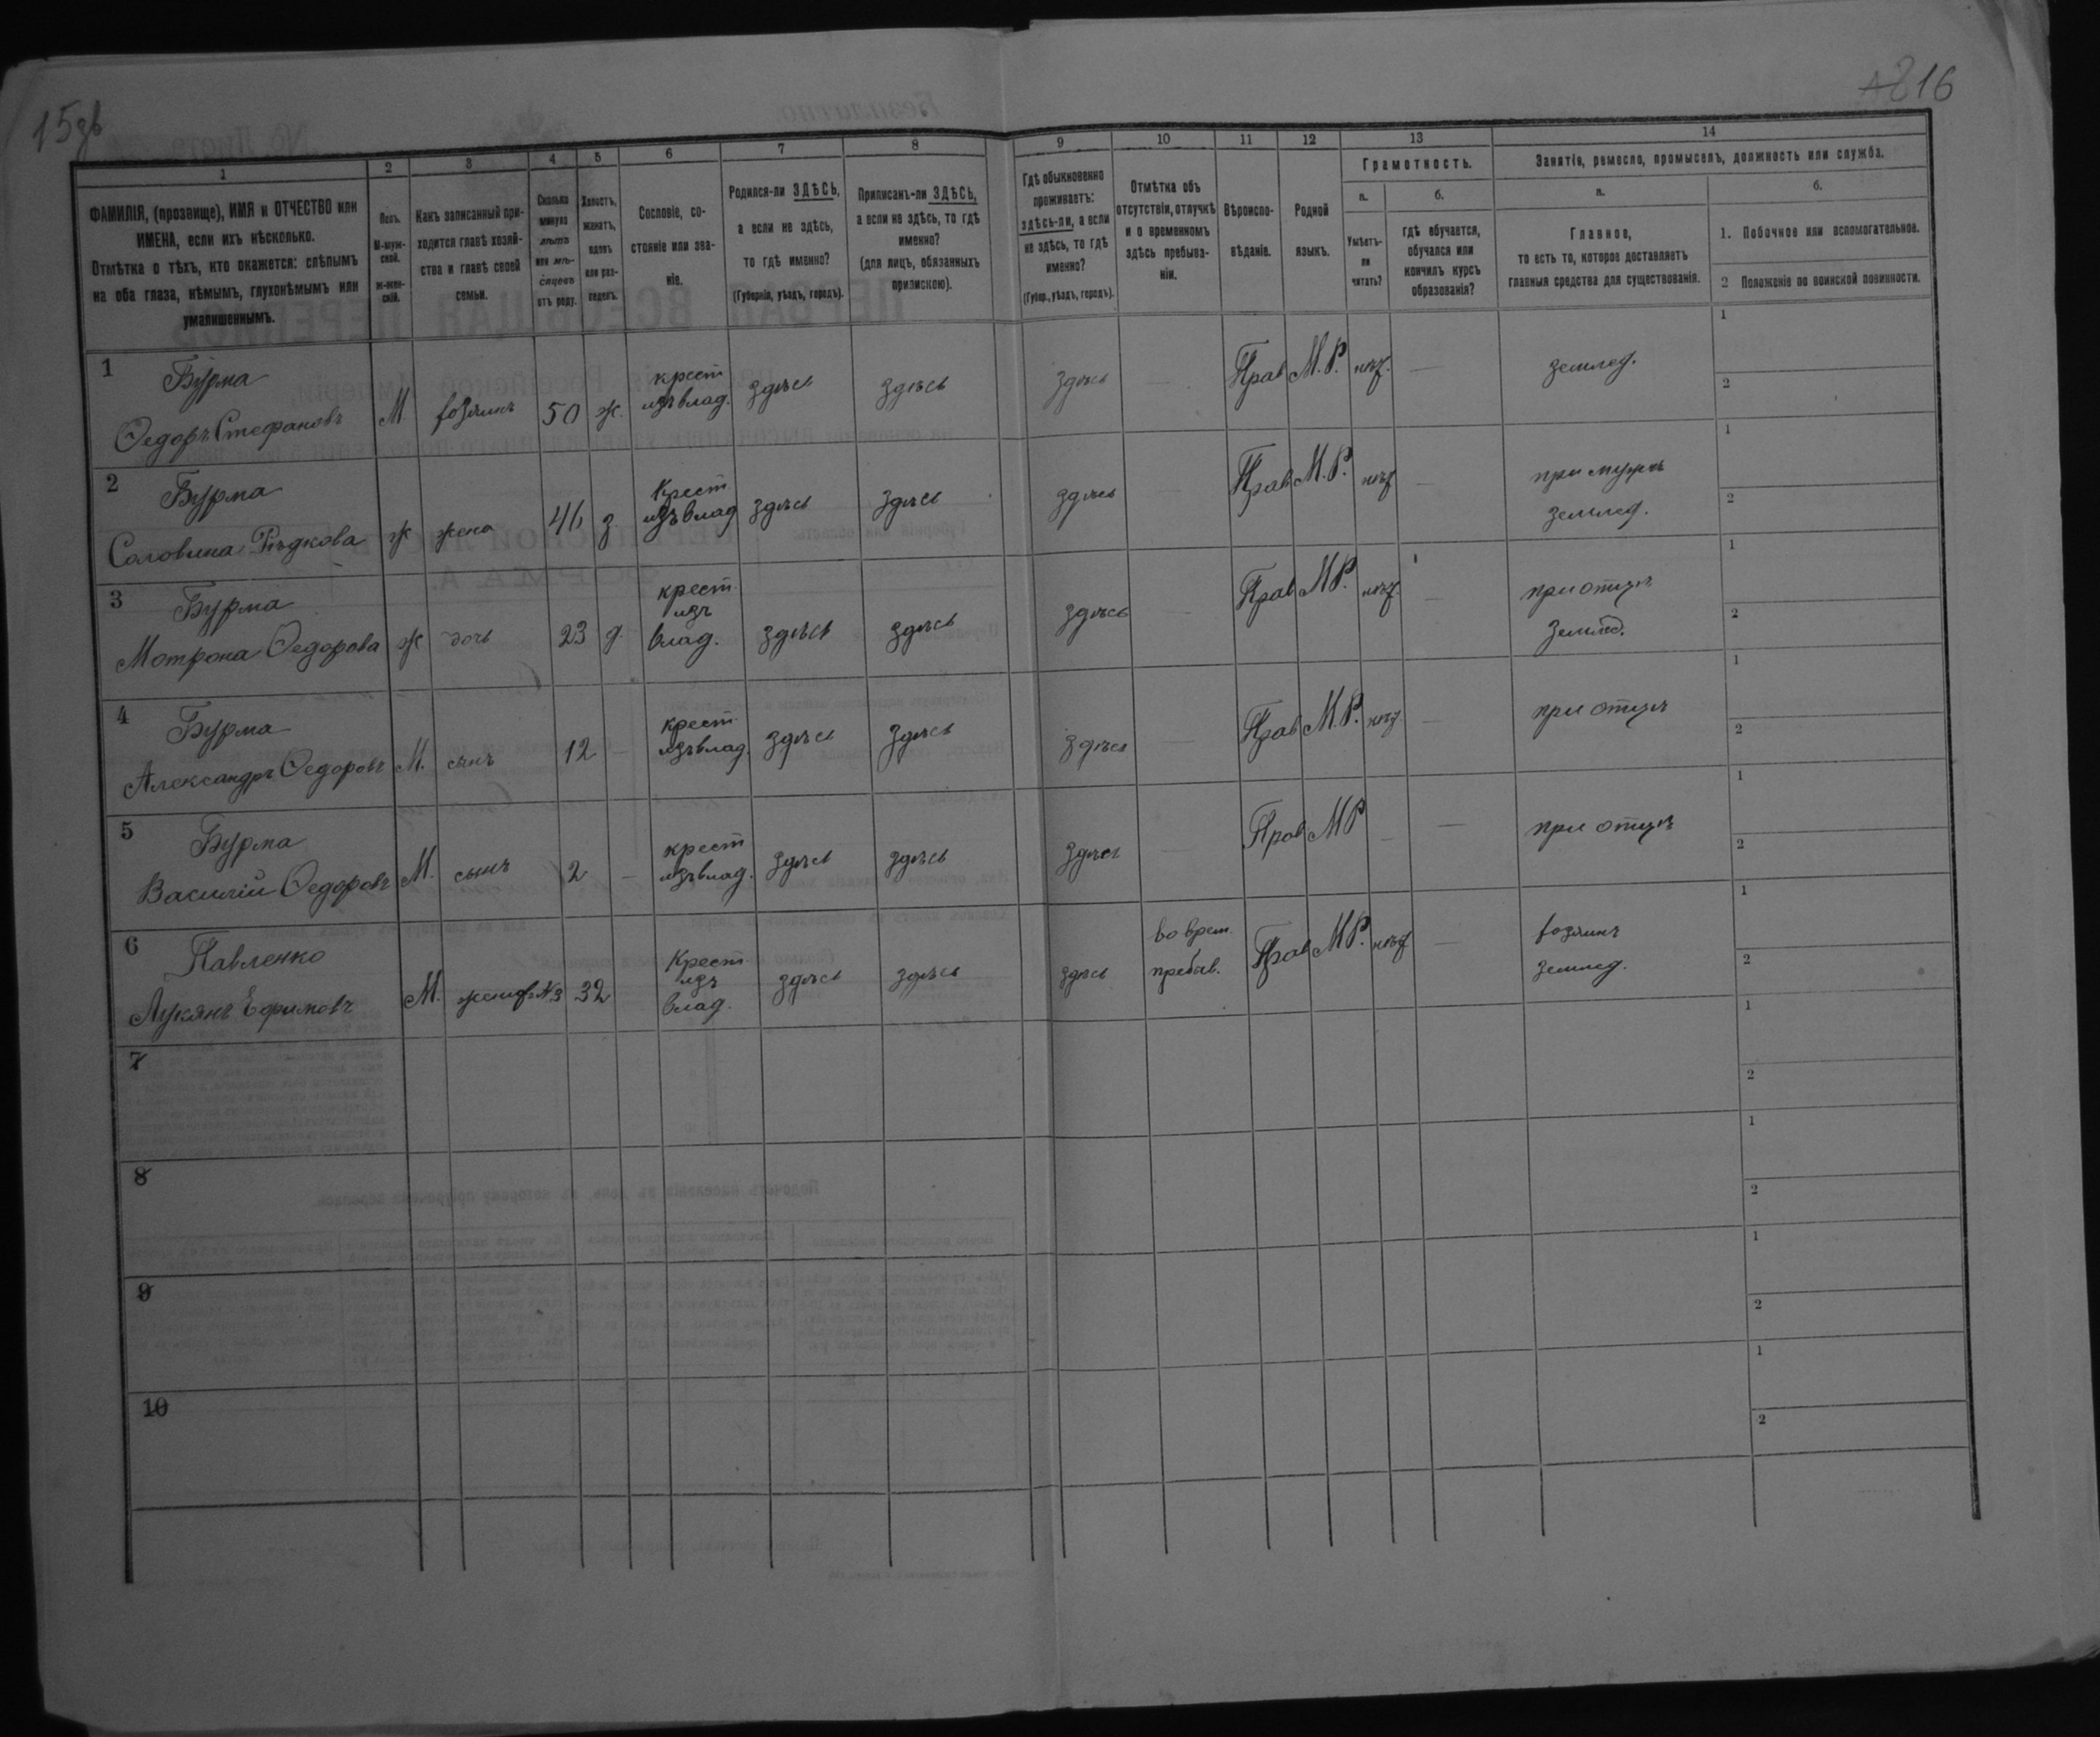 15зв
16
1
2
3
4
5
6
7
8
9
10
11
12
13
14
ФАМИЛІЯ, (прозвище), ИМЯ и ОТЧЕСТВО или
ИМЕНА, если ихъ нѣсколько.
Отмѣтка о тѣхъ, кто окажется: слѣпымъ
на оба глаза, нѣмымъ, глухонѣмымъ или
умалишеннымъ.
Полъ.
М-муж-
ской.
ж-жен-
скій.
Какъ записанный при-
ходится главѣ хозяй-
ства и главѣ своей
семьи.
Сколько
минуло
лѣтъ
или мѣ-
сяцевъ
отъ роду.
Холостъ,
женатъ,
вдовъ
или раз-
веденъ.
Сословіе, со-
стояніе или зва-
ніе.
Родился-ли ЗДѢСЬ,
а если не здѣсь,
то гдѣ именно?
(Губернія, уѣздъ, городъ).
Приписанъ-ли ЗДѢСЬ,
а если не здѣсь, то гдѣ
именно?
(для лицъ, обязанныхъ
припискою).
Гдѣ обыкновенно
проживаетъ:
здѣсь-ли, а если
не здѣсь, то гдѣ
именно?
(Губер., уѣздъ, городъ).
Отмѣтка объ
отсутствіи, отлучкѣ
и о временномъ
здѣсь пребыва-
ніи.
Вѣроиспо-
вѣданіе.
Родной
языкъ.
Грамотность.
а.
Умѣетъ-
ли
читать?
б.
гдѣ обучается,
обучался или
кончилъ курсъ
образованія?
Занятіе, ремесло, промыселъ, должность или служба.
а.
Главное,
то есть то, которое доставляетъ
главныя средства для существованія.
б.
1. Побочное или вспомогательное.
2 Положеніе по воинской повинности.
1 Бурма
Ѳедоръ Стефановъ М. хозяинъ 50 ж. крест изъ влад. здѣсь здѣсь здѣсь — Прав М.Р. нѣт. — землед. 1 2
2 Бурма
ж жена 46 з Крест изъ влад здѣсь здѣсь здѣсь — Прав М.Р. нѣт — при мужѣ землед. 1 2
3 Бурма
Мотрона Ѳедорова ж дочь 23 д. крест. изъ влад. здѣсь здѣсь здѣсь — Прав М.Р. нѣт. — при отцѣ землед. 1 2
4 Бурма
Александръ Ѳедоровъ М. сынъ 12 — крест. изъ влад. здѣсь здѣсь здѣсь — Прав М.Р. нѣт. — при отцѣ 1 2
5 Бурма
Василій Ѳедоровъ М. сынъ 2 — крест изъ влад. здѣсь здѣсь здѣсь — Прав М.Р — — при отцѣ 1 2
6 Павленко
Лукянъ Ефимовъ М. №3 32 Крест изъ влад. здѣсь здѣсь здѣсь во врем. пребыв. Прав М.Р. нѣт — хозяинъ землед. 1 2
7 1 2
8 1 2
9 1 2
10 1 2